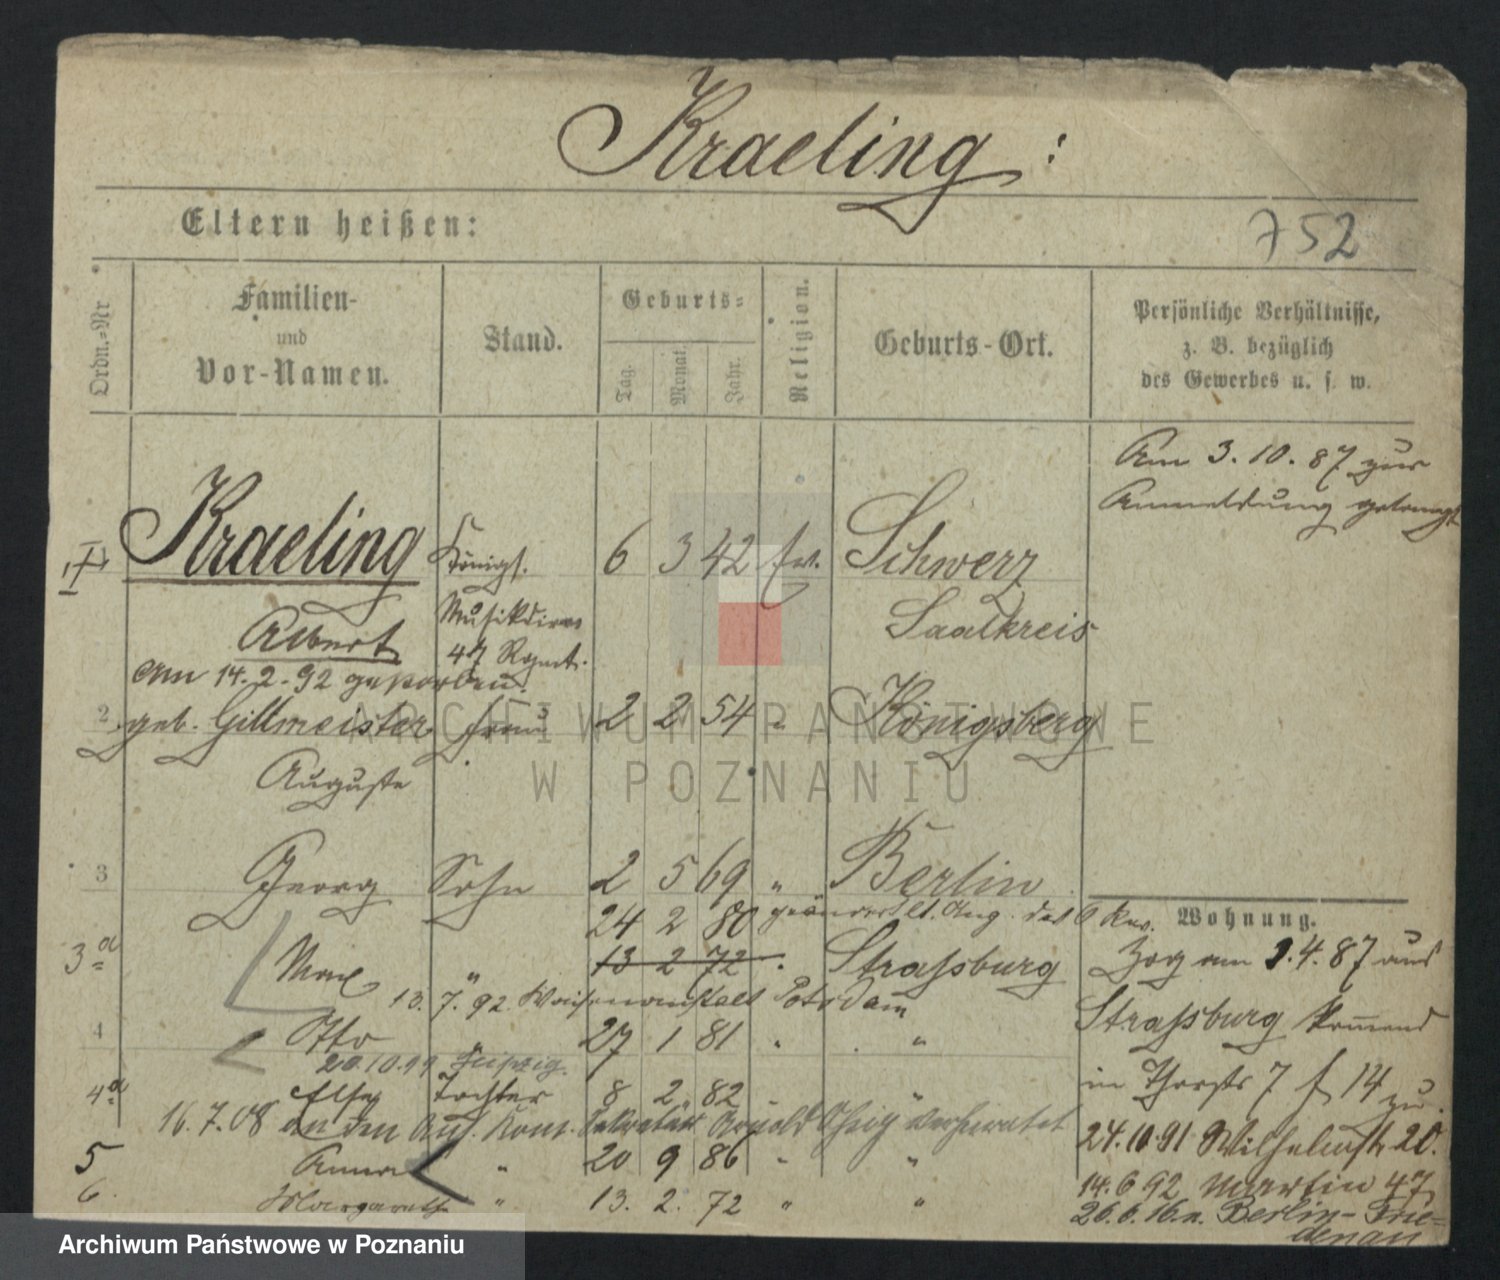 Kraeling:
Eltern heißen:
752
Ordn.-Nr
Familien-
und
Vor-Namen.
Stand.
Geburts-
Tag.
Monat.
Jahr.
Religion.
Geburts-Ort.
Persönliche Verhältnisse,
z. B. bezüglich
des Gewerbes u. s. w.
Am 3.10.87 zur
Anmeldung gelangt
1 Kraeling Königl. 6 3 42 ev. Schwerz
Albert Musikdirec 47 Regmt. Saalkreis
Am 14.2.92 gestorben.
2 geb. Gillmeister Frau 2 2 54 " Königsberg
Auguste
3 Georg Sohn 2 5 69 " Berlin
24 2 80 geändert lt. Ang. des
3a Max " 13 2 72 " Straßburg
13. 7. 92. Waisenanstalt Potsdam
4 Otto " 27 1 81 " "
20.10.99 Leipzig.
4a Else Tochter 8 2 82 " "
16.7.08 an den Kom. Sekretär Arnold verheiratet
5 Anna " 20 9 86 " "
6. Margarethe " 13. 2. 72 " "
Wohnung.
Zog am 1.4.87 aus
Straßburg kommend
in 7 f 14 zu.
24.10.91 Wilhelmstr 20.
14.6 92 Martin 47
26.6.16. n. Berlin-Frie-
denau
ARCHIWUM PAŃSTWOWE
W POZNANIU
Archiwum Państwowe w Poznaniu